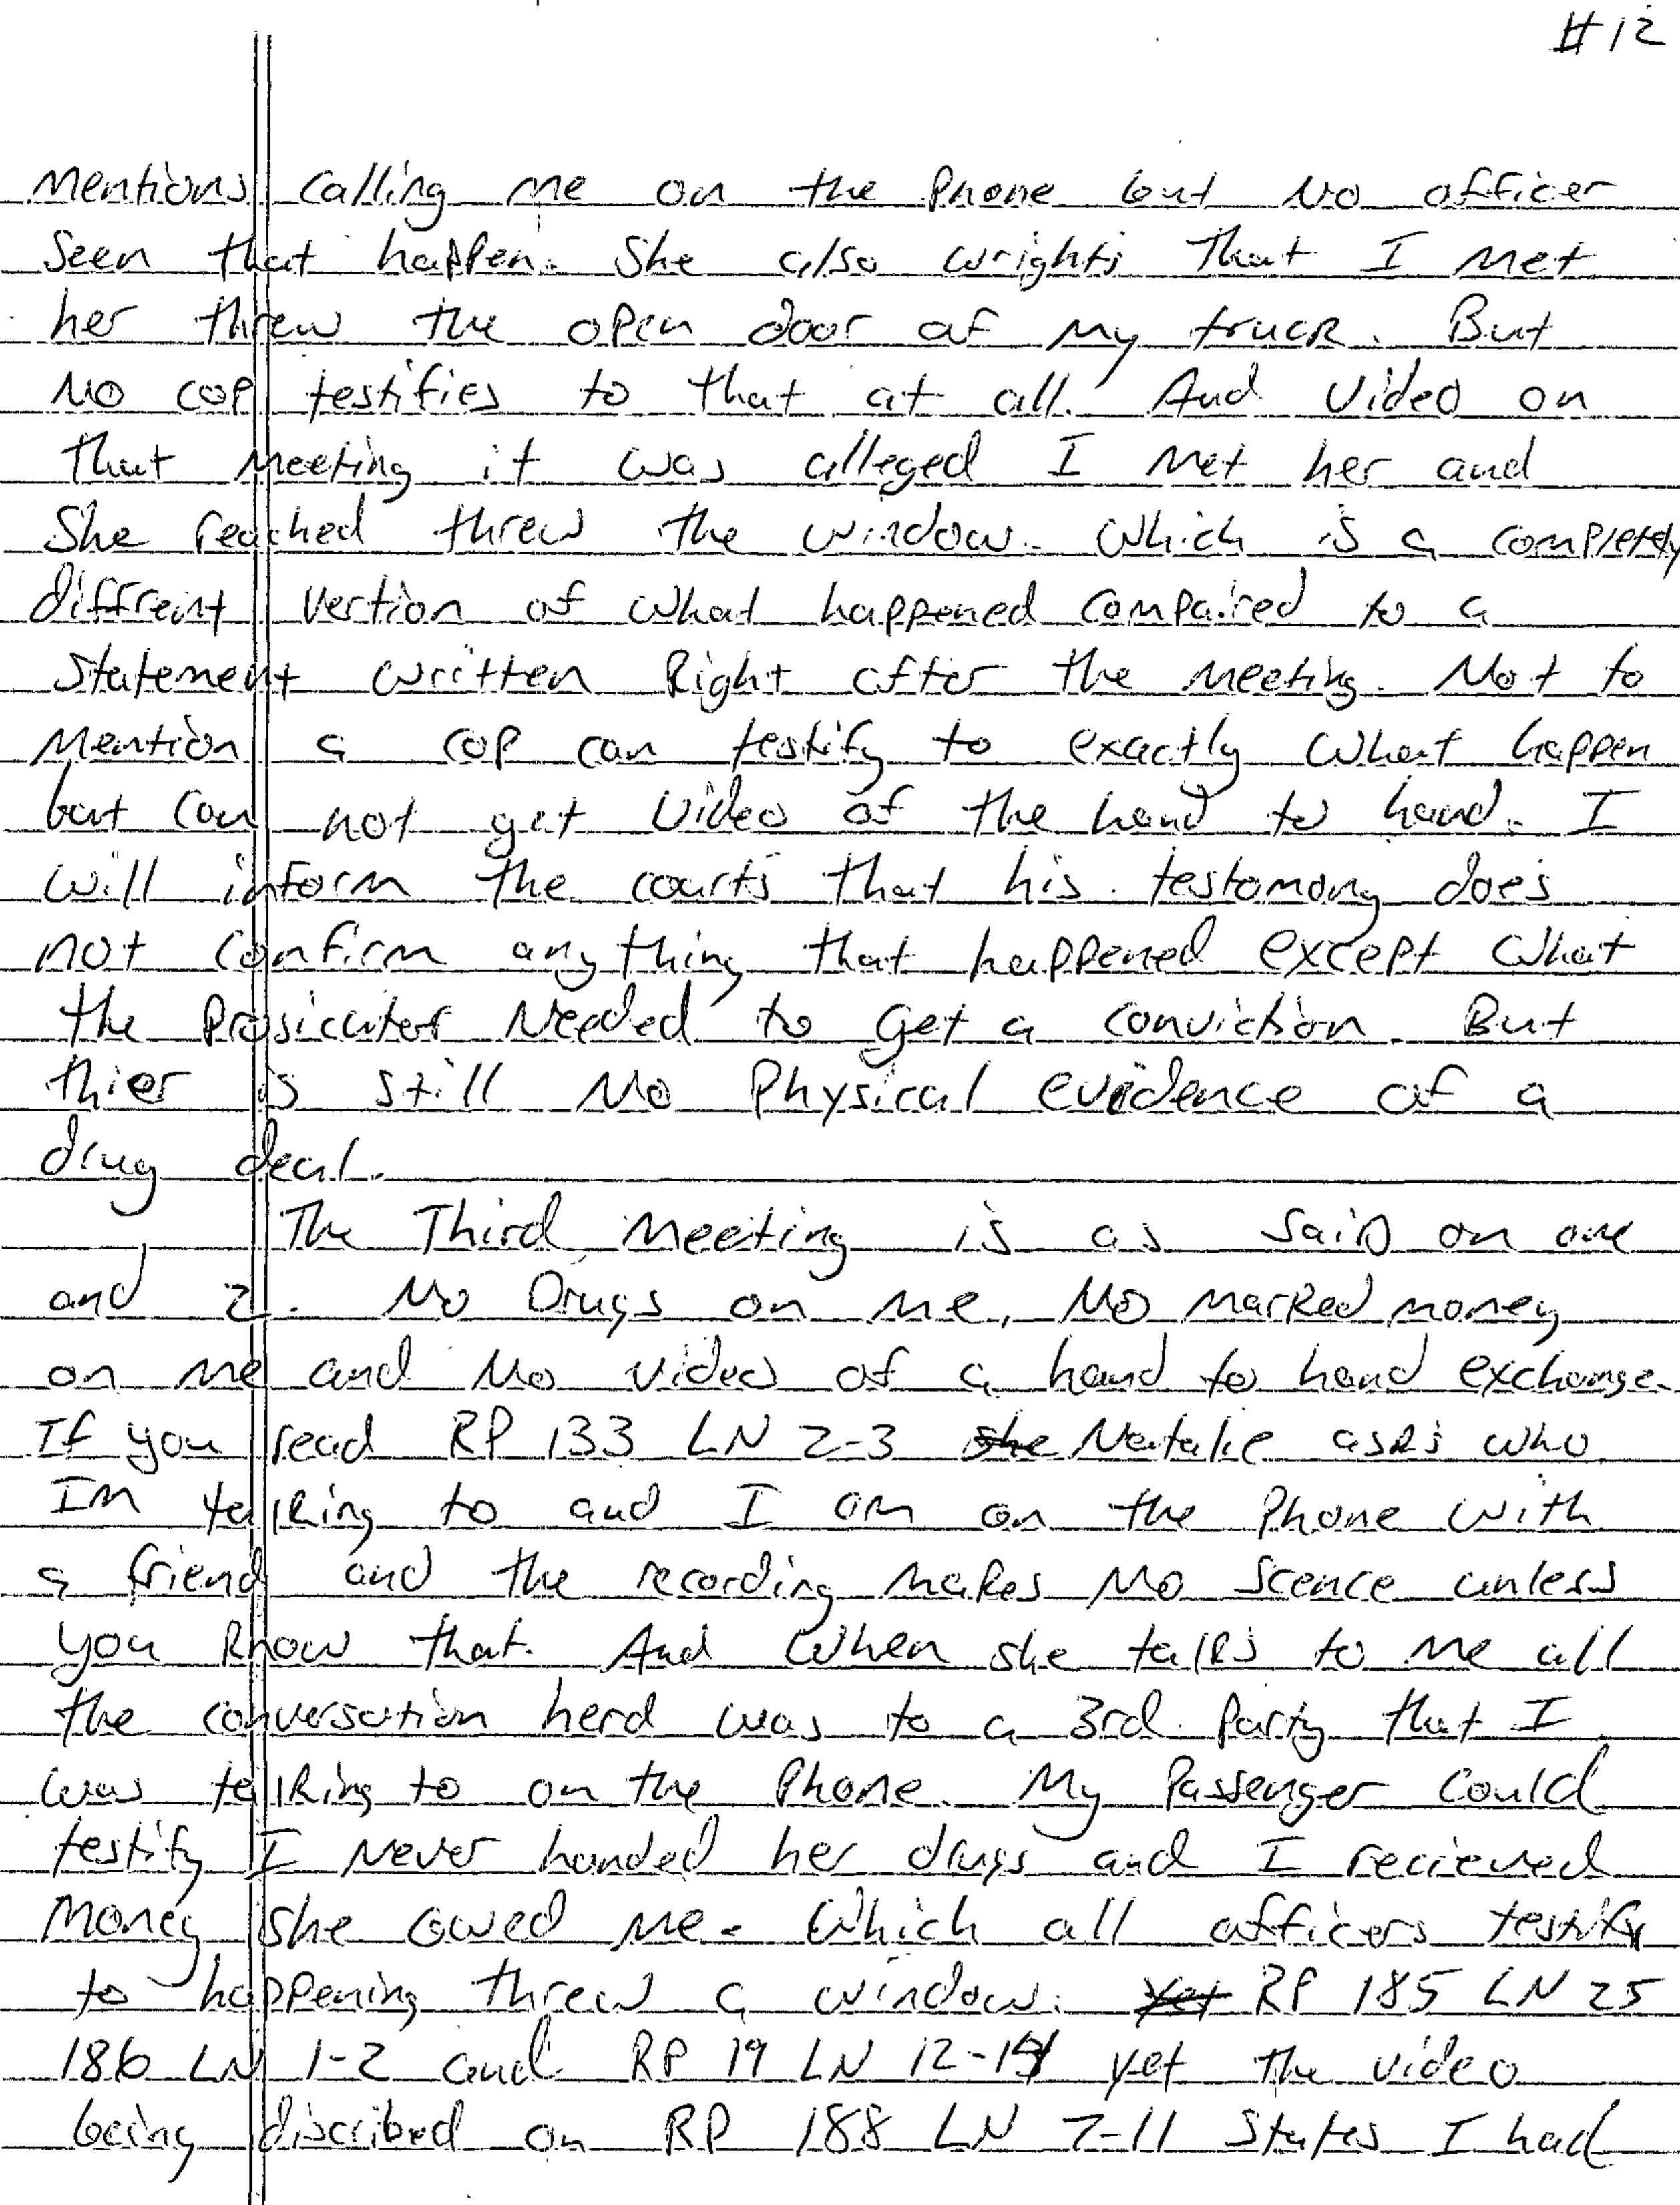 #12
Mentions calling me on the Phone but No officer
Seen that happen. She also wrights That I Met
her threw the open door of my truck. But
No cop testifies to that at all. And Video on
That Meeting it was alleged I Met her and
She reached threw the window. Which is a completely
diffreint vertion of what happened compaired to a
Statement written Right after the Meeting. Not to
Mention a cop can testify to exactly what happen
but can not get Video of the hand to hand. I
will inform the courts that his testomony does
not confirm anything that happened except what
the Prosicuter Needed to get a conviction. But
thier is still No Physical evidence of a
drug deal.
The Third Meeting is as said on one
and 2. No Drugs on me, No marked money
on me and No video of a hand to hand exchange.
If you read RP 133 LN 2-3 she Natalie asks who
Im talking to and I am on the Phone with
a friend and the recording makes No scence unless
you know that. And when she talks to me all
the conversation herd was to a 3rd Party that I
was talking to on the Phone. My Passenger Could
testify I Never handed her drugs and I recieved
Money she owed me. Which all officers testify
to happening threw a window. Yet RP 185 LN 25
186 LN 1-2 and RP 19 LN 12-14 yet the video
being discribed on RP 188 LN 7-11 States I had